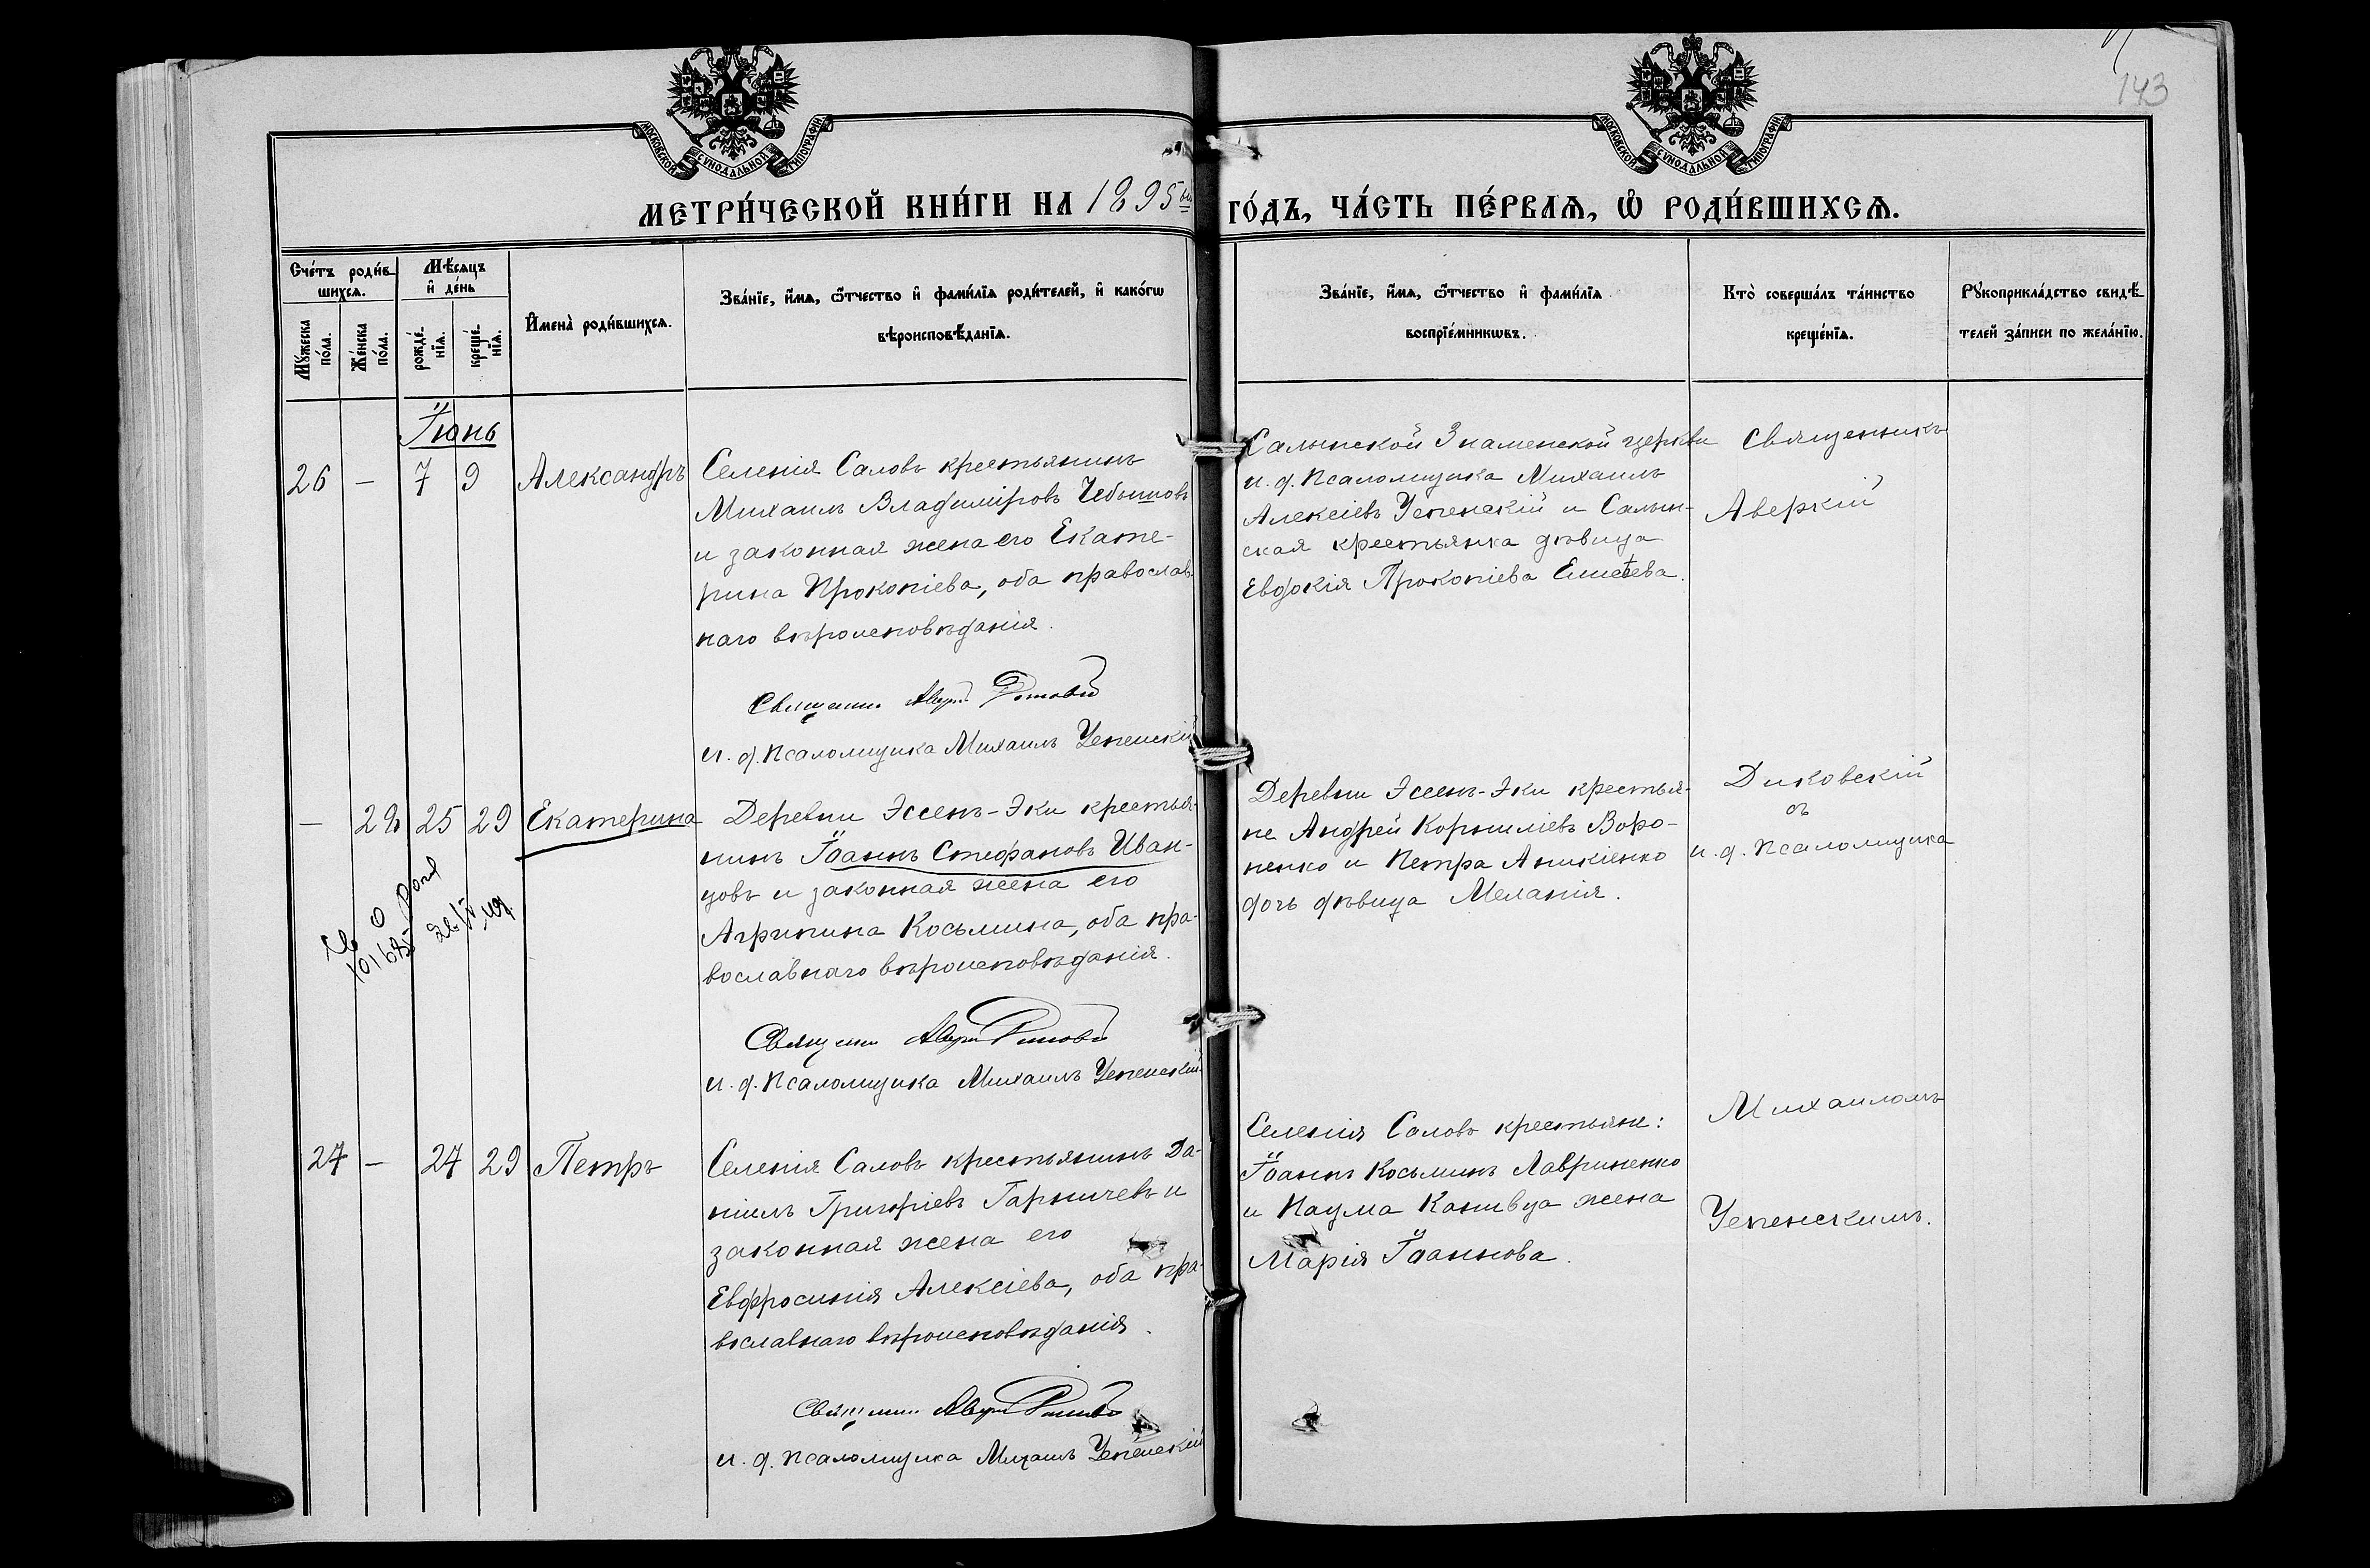 143
МОСКОВСКОЙ СѴНОДАЛЬНОЙ ТИПОГРАФІИ
МОСКОВСКОЙ СѴНОДАЛЬНОЙ ТИПОГРАФІИ
МЕТРИ́ЧЕСКОЙ КНИ́ГИ НА 1895 ый ГО́ДЪ, ЧА́СТЬ ПЕ́РВАѦ, Ѽ РОДИ́ВШИХСѦ.
Сче́тъ роди́в-
шихсѧ.
Мꙋ́жеска по́ла.
Же́нска по́ла.
Мѣ́сѧцъ
и҆ де́нь
рожде́-
нїѧ.
креще́-
нїѧ.
И҆мена̀ роди́вшихсѧ.
Зва́нїе, и҆́мѧ, ѻ҆́тчество и҆ фами́лїѧ роди́телей, и҆ како́гѡ
вѣроисповѣ́данїѧ.
Зва́нїе, и҆́мѧ, ѻ҆́тчество и҆ фами́лїѧ
воспрїе́мникѡвъ.
Кто̀ соверша́лъ та́инство
креще́нїѧ.
Рꙋкоприкла́дство свидѣ́-
телей за́писи по жела́нїю.
Іюнь
26 — 7 9 Александръ
Селенія Саловъ крестьянинъ
Михаилъ Владиміровъ Чебышовъ
и законная жена его Екате-
рина Прокопіева, оба православ-
наго вѣроисповѣданія.
Священн. Авер.
и. д. псаломщика Михаилъ Успенскій
Салынской Знаменской церкви
и. д. псаломщика Михаилъ
Алексіевъ Успенскій и Салын-
ская крестьянка дѣвица
Евдокія Прокопіева
Священникъ
Аверкій
— 28 25 29 Екатерина
Деревни Эссенъ-Эки крестья-
нинъ Іоаннъ Стефановъ Иван-
цовъ и законная жена его
Агрипина Косьмина, оба пра-
вославнаго вѣроисповѣданія.
Священн. Авер.
и. д. псаломщика Михаилъ Успенскій
Деревни Эссенъ-Эки крестья-
не Андрей Корниліевъ Воро-
ненко и Петра Аникіенко
дочь дѣвица Меланія.
Диковскій
съ
и. д. псаломщика
27 — 27 29 Петръ
Селенія Саловъ крестьянинъ Да-
ніилъ Григоріевъ Гарничевъ и
законная жена его
Евфросинія Алексіева, оба пра-
вославнаго вѣроисповѣданія.
Священн. Авер.
и. д. псаломщика Михаилъ Успенскій
Селенія Саловъ крестьяне:
Іоаннъ Косьминъ Лавриненко
и Наума Канивца жена
Марія Іоаннова.
Михаиломъ
Успенскимъ.